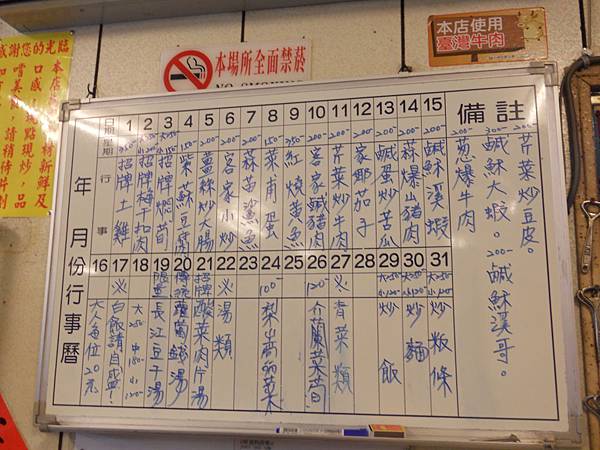 感謝您的光臨
本場所全面禁菸
NO SMOKING
本店使用
臺灣牛肉
年 月份行事曆
日期 星期 行 事
1 招牌土雞
2 招牌梅干扣肉
3 招牌燜苜
4 150- 紫蘇豆腐
5 200- 薑絲炒大腸
6 200- 客家小炒
7 200- 蒜苗鯊魚
8 150- 菜甫蛋
9 紅燒黃魚
10 200- 客家鹹豬肉
11 200- 芹菜炒牛肉
12 200- 家鄉茄子
13 200- 鹹蛋炒苦瓜
14 200- 蒜爆山豬肉
15 200- 鹹酥溪蝦
備註
200- 蔥爆牛肉
300- 鹹酥大蝦。200- 鹹酥溪哥。
200- 芹菜炒豆皮。
16 大人每位20元
17 ※ 白飯請自盛!
18 大250- 中180- 小120-
19 長江豆干湯
20 蘿蔔鱔湯
21 招牌酸菜肉片湯
22 ※ 湯類
23
24 100- 梨山高麗菜
25
26 120- 介蘭菜苜
27 ※ 青菜類
28
29 炒飯
30 炒麵
31 炒粄條